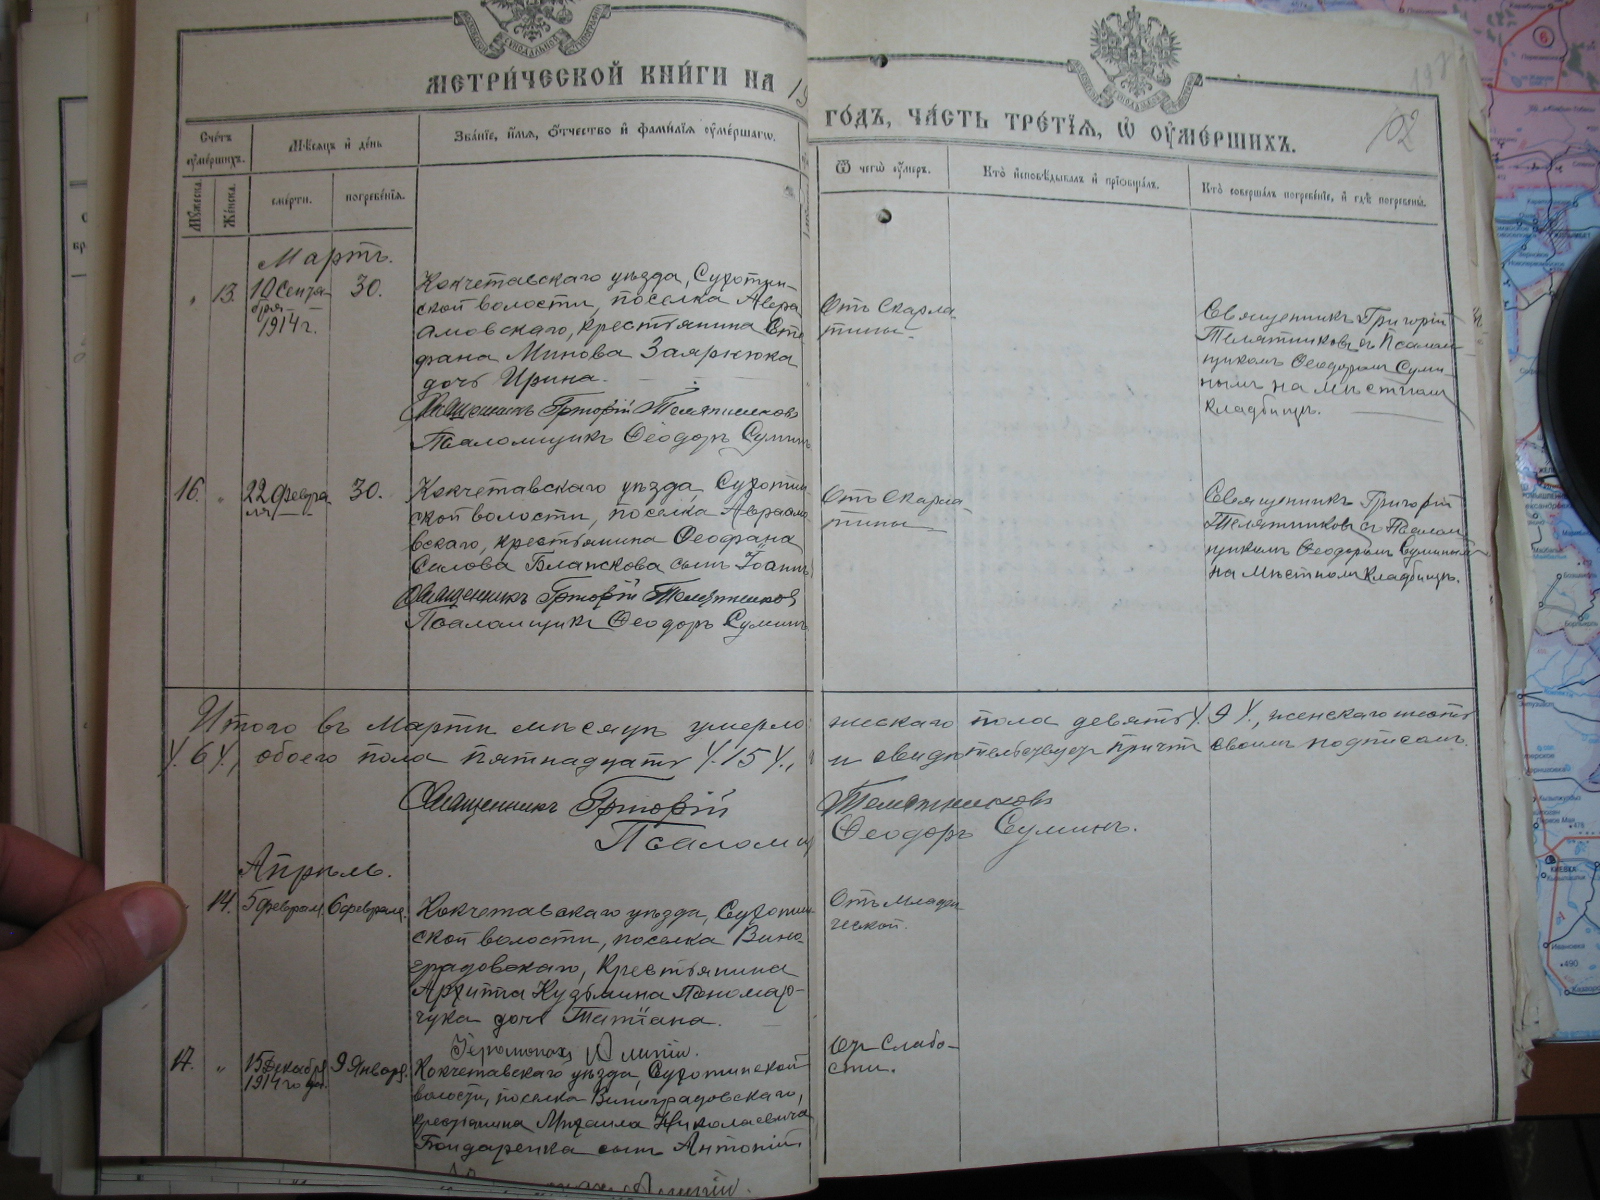 МЕТРИ́ЧЕСКОЙ КНИ́ГИ НА 19
ГО́ДЪ, ЧА́СТЬ ТРЕ́ТІѦ, Ѡ҆ ОУ҆МЕ́РШИХЪ.
102
Сче́тъ оу҆ме́ршихъ.
Мѣ́сѧцъ и҆ де́нь
Зва́нїе, и҆́мѧ, ѻ҆́тчество и҆ фами́лїѧ оу҆ме́ршагѡ.
Ѿ чегѡ̀ оу҆́меръ.
Кто̀ и҆сповѣ́дывалъ и҆ прїѡбща́лъ.
Кто̀ соверша́лъ погребе́нїе, и҆ гдѣ̀ погребены̀.
Мꙋ́жеска.
Же́нска.
сме́рти.
погребе́нїѧ.
Мартъ.
13. 10 Сентя-
бря
1914 г.
30.
Кокчетавскаго уѣзда, Сухотин-
ской волости, поселка Авра
амовскаго, крестьянина Сте
фана Минова Заярнюка
дочь Ирина.
Священникъ Григорій Телятниковъ
Псаломщикъ Ѳеодоръ Суминъ
Отъ Скарла-
тины
Священникъ Григорій
Телятниковъ съ Псалом
щикомъ Ѳеодоромъ Суми-
нымъ на мѣстномъ
кладбищѣ.
16. " 22 Февра
ля
30.
Кокчетавскаго уѣзда, Сухотин
ской волости, поселка Авраамо
вскаго, крестьянина Ѳеофана
Силова сынъ Іоаннъ
Священникъ Григорій Телятников
Псаломщикъ Ѳеодоръ Суминъ
Отъ Скарла
тины
Священникъ Григорій
Телятниковъ съ Псалом
щикомъ Ѳеодоромъ Суминымъ
на мѣстномъ кладбищѣ.
Итого въ Мартѣ мѣсяцѣ умерло мужескаго пола девять /.9./, женскаго шесть
/.6./, обоего пола пятнадцать /.15./, и свидѣтельствуетъ причтъ своимъ подписомъ.
Священникъ Григорій Телятниковъ
Псаломщ Ѳеодоръ Суминъ.
Апрѣль.
" 14. 5 февраля 6 февраля.
Кокчетавскаго уѣзда, Сухотин
ской волости, поселка Вино
градовскаго, крестьянина
Архипа Кузьмина Пономар-
чука дочь Татіана.
Іеромонахъ Алипій.
Отъ Младен
ческой.
17. " 15 Декабря
1914 года.
9 Января.
Кокчетавскаго уѣзда, Сухотинской
волости, поселка Виноградовскаго,
крестьянина Михаила Николаевича
Бондаренка сынъ Антоній
От Слабо-
сти.
Алипій.